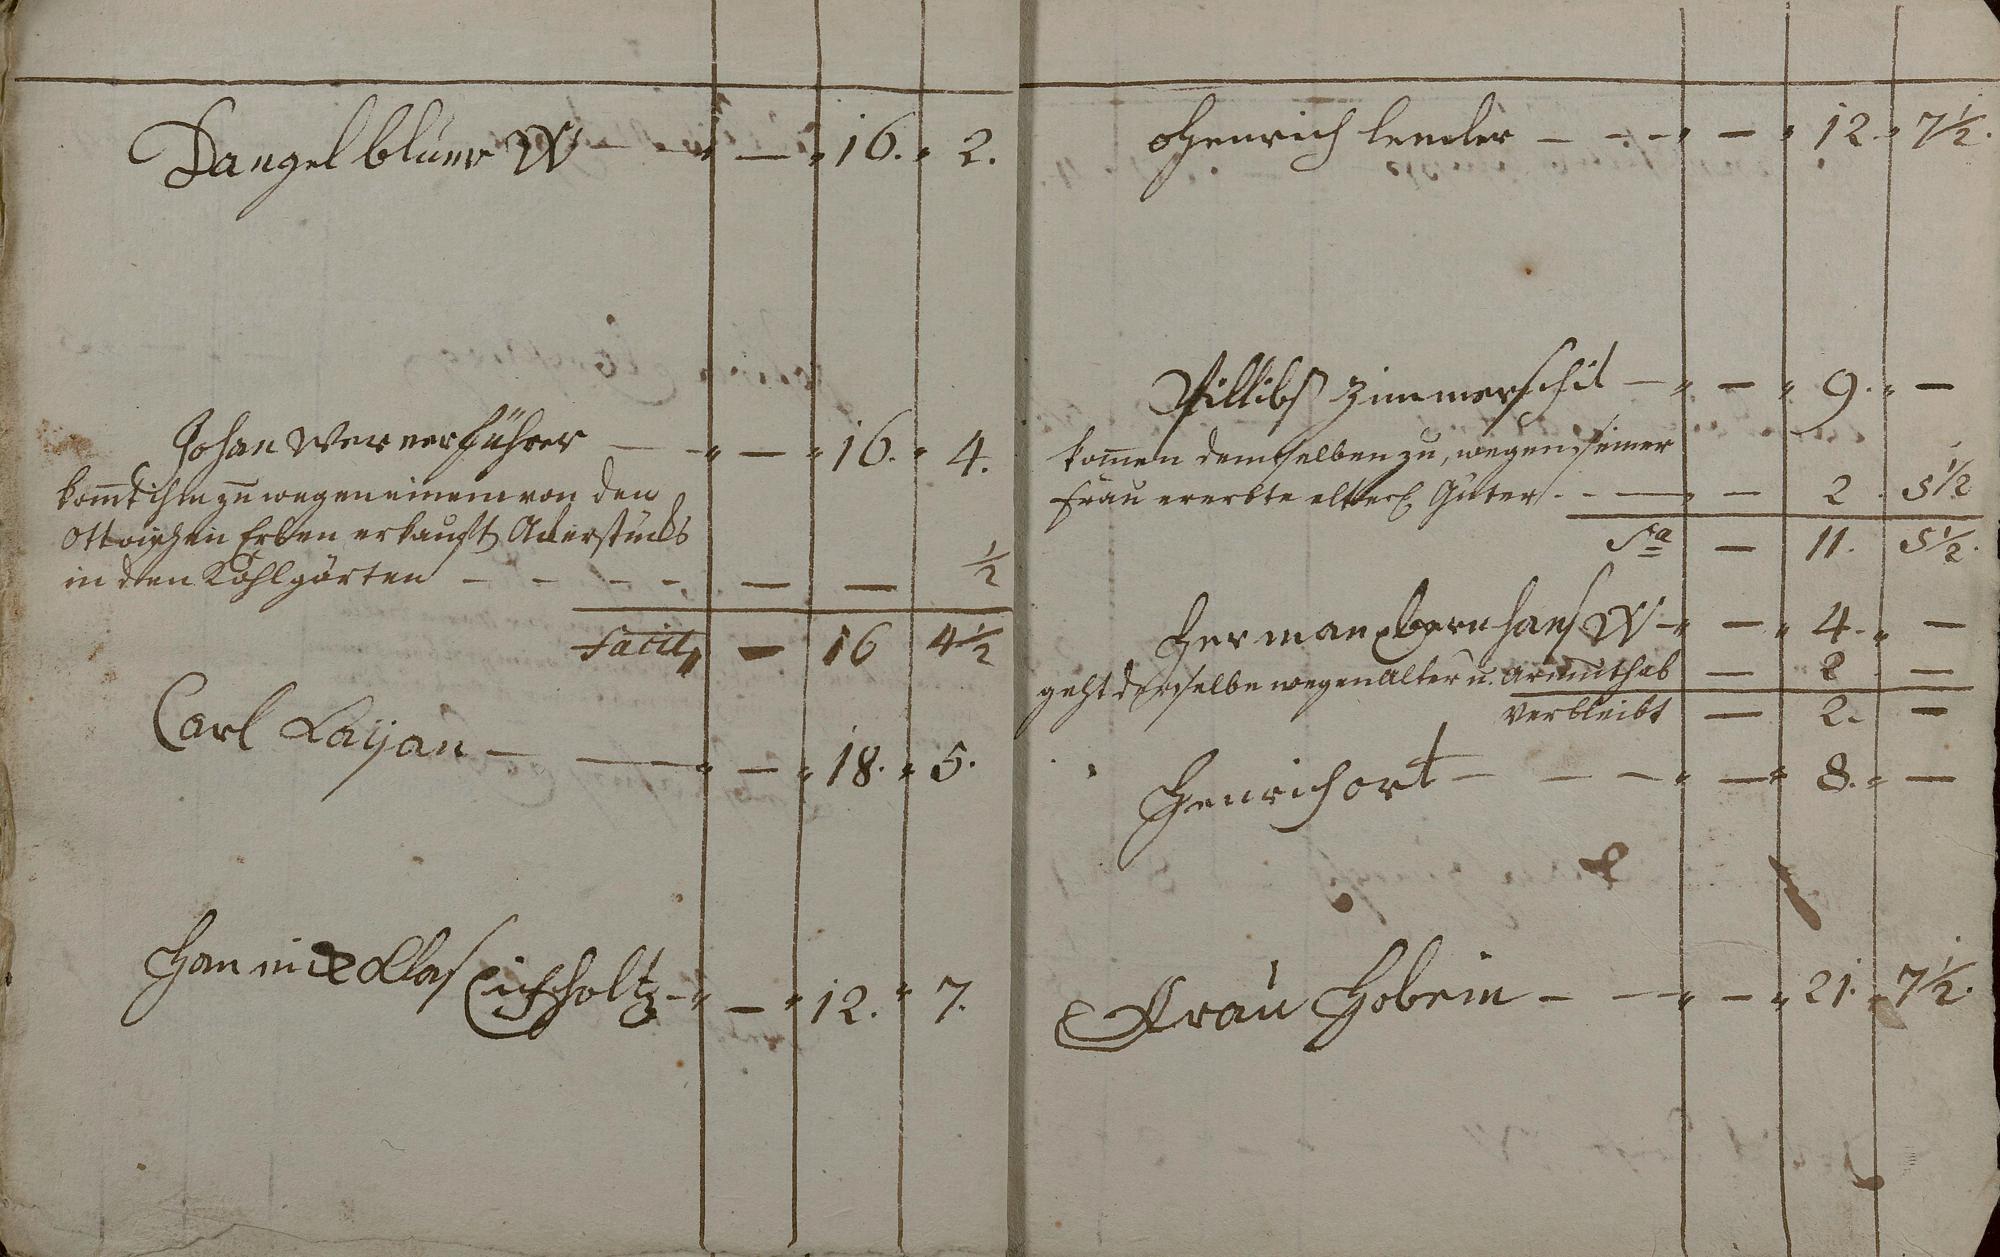 Dangel blüm W — — " — " 16. " 2.
Johan Werner führer — — " — " 16. " 4.
komt ihm zu wegen einem von den
Ottoischen Erben erkauft Ackerstücks
in den Kohlgärten — — — — — — — ½
facit — 16 4½
Carl Layan — — " — " 18. " 5.
Han nickClas Eichholtz — " — " 12. " 7.
Henrich lender — — — " — " 12. " 7½.
Fillibs zimmerschit — " — " 9. " —
komen demselben zu, wegen seiner
frau ererbte elterl. Güter — — — 2 . 5½
Sa — 11. 5½.
Herman bernhans W — " — " 4. " —
geht derselbe wegen alter u. armuth ab — 2 —
verbleibt — 2. —
Henrich ort — — — " — " 8. " —
Frau Hobein — — " — " 21. " 7½.